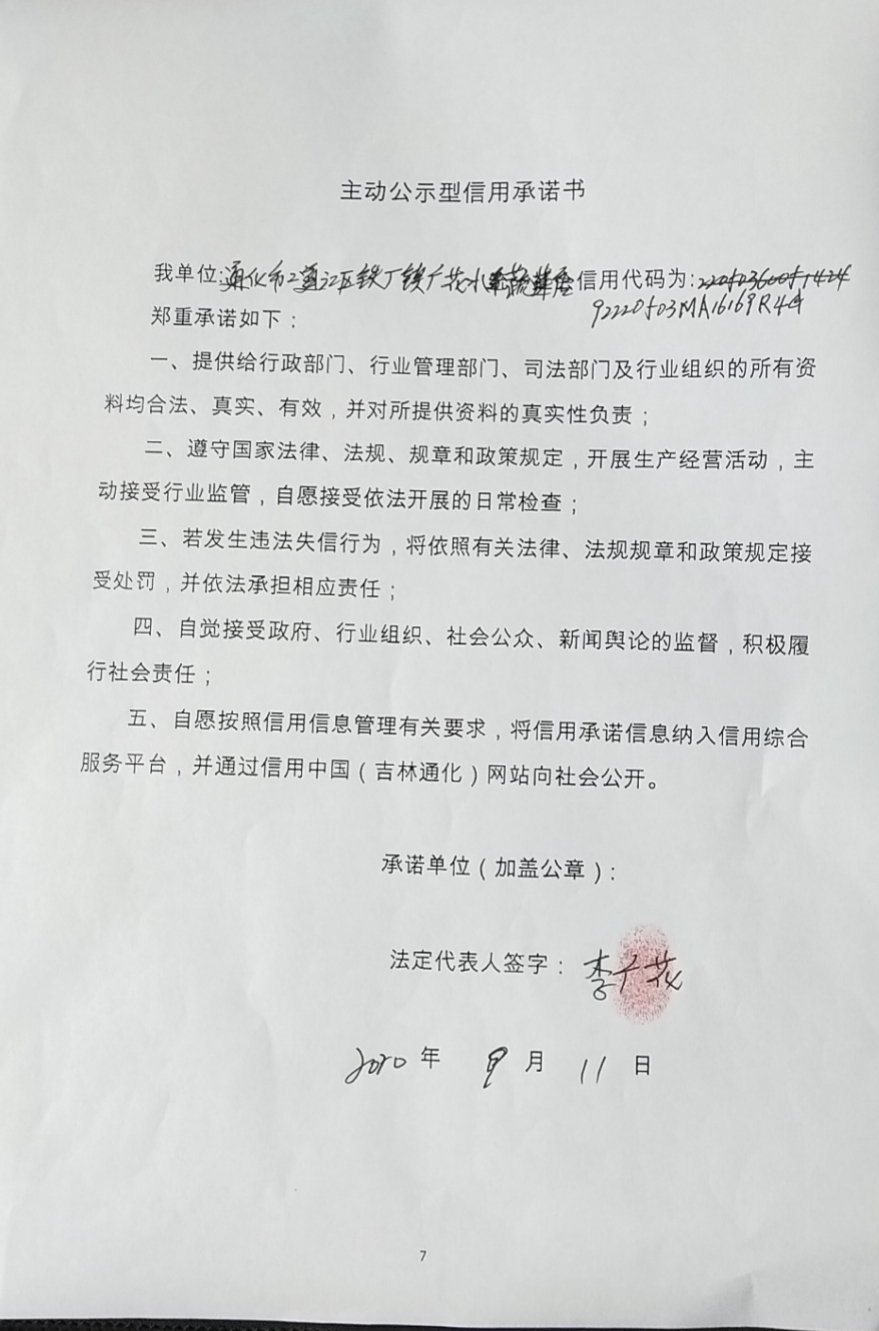 主动公示型信用承诺书
我单位:通化市二道江区铁厂镇广花水果蔬菜店信用代码为:22050360051424
92220503MA16169R4G
郑重承诺如下：
一、提供给行政部门、行业管理部门、司法部门及行业组织的所有资
料均合法、真实、有效，并对所提供资料的真实性负责；
二、遵守国家法律、法规、规章和政策规定，开展生产经营活动，主
动接受行业监管，自愿接受依法开展的日常检查；
三、若发生违法失信行为，将依照有关法律、法规规章和政策规定接
受处罚，并依法承担相应责任；
四、自觉接受政府、行业组织、社会公众、新闻舆论的监督，积极履
行社会责任；
五、自愿按照信用信息管理有关要求，将信用承诺信息纳入信用综合
服务平台，并通过信用中国（吉林通化）网站向社会公开。
承诺单位（加盖公章）：
法定代表人签字：李广花
2020年 9月 11日
7